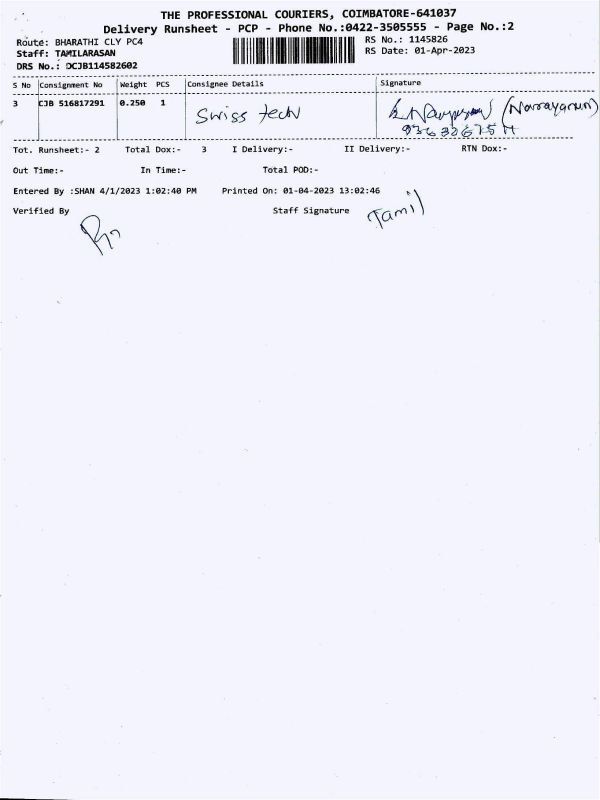 THE PROFESSIONAL COURIERS, COIMBATORE-641037
Delivery Runsheet - PCP - Phone No.:0422-3505555 - Page No.:2
Route: BHARATHI CLY PC4
RS No.: 1145826
Staff: TAMILARASAN
RS Date: 01-Apr-2023
DRS No.: DCJB114582602
S No Consignment No Weight PCS Consignee Details Signature
3 CJB 516817291 0.250 1 Swiss tech (Narayanan)
Tot. Runsheet:- 2 Total Dox:- 3 I Delivery:- II Delivery:- RTN Dox:-
Out Time:- In Time:- Total POD:-
Entered By :SHAN 4/1/2023 1:02:40 PM Printed On: 01-04-2023 13:02:46
Verified By Staff Signature Tamil